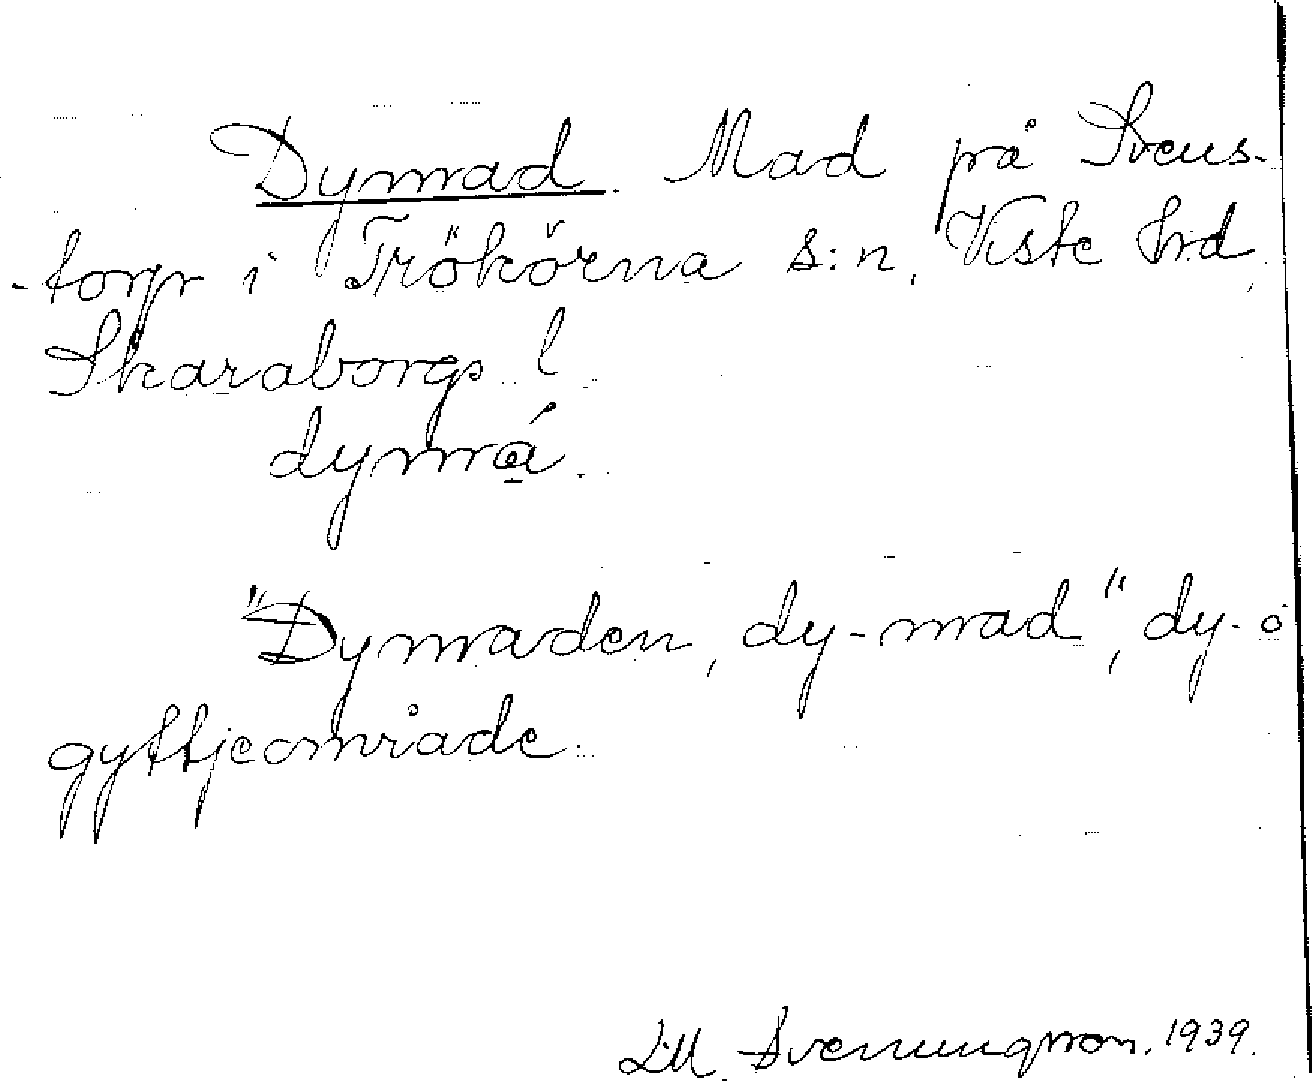 Dymad. Mad på Svens-
-torp i Trökörna s:n, Viste hrd,
Skaraborgs l.
dymǫá.
"Dymaden, dy-mad", dy- o
gyttjeområde.
Svenungsson. 1939.